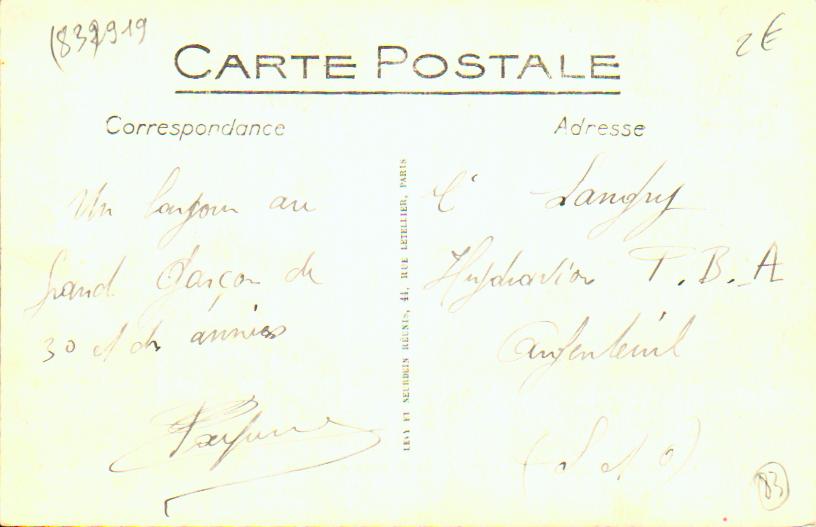 (83)2919
2€
CARTE POSTALE
Correspondance
Adresse
Un bonjour au
grand Garçon de
30 et des années
Langry
Hydravion T.B.A
Argenteuil
(S et O)
LEVY ET NEURDEIN RÉUNIS, 44, RUE LETELLIER, PARIS
83